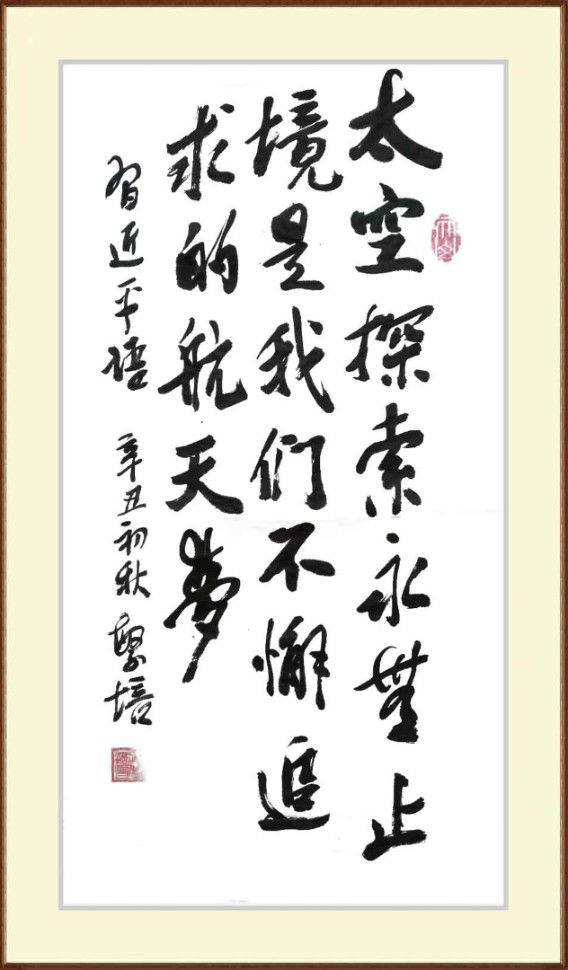 太空探索永無止
境是我们不懈追
求的航天夢
习近平语 辛丑初秋